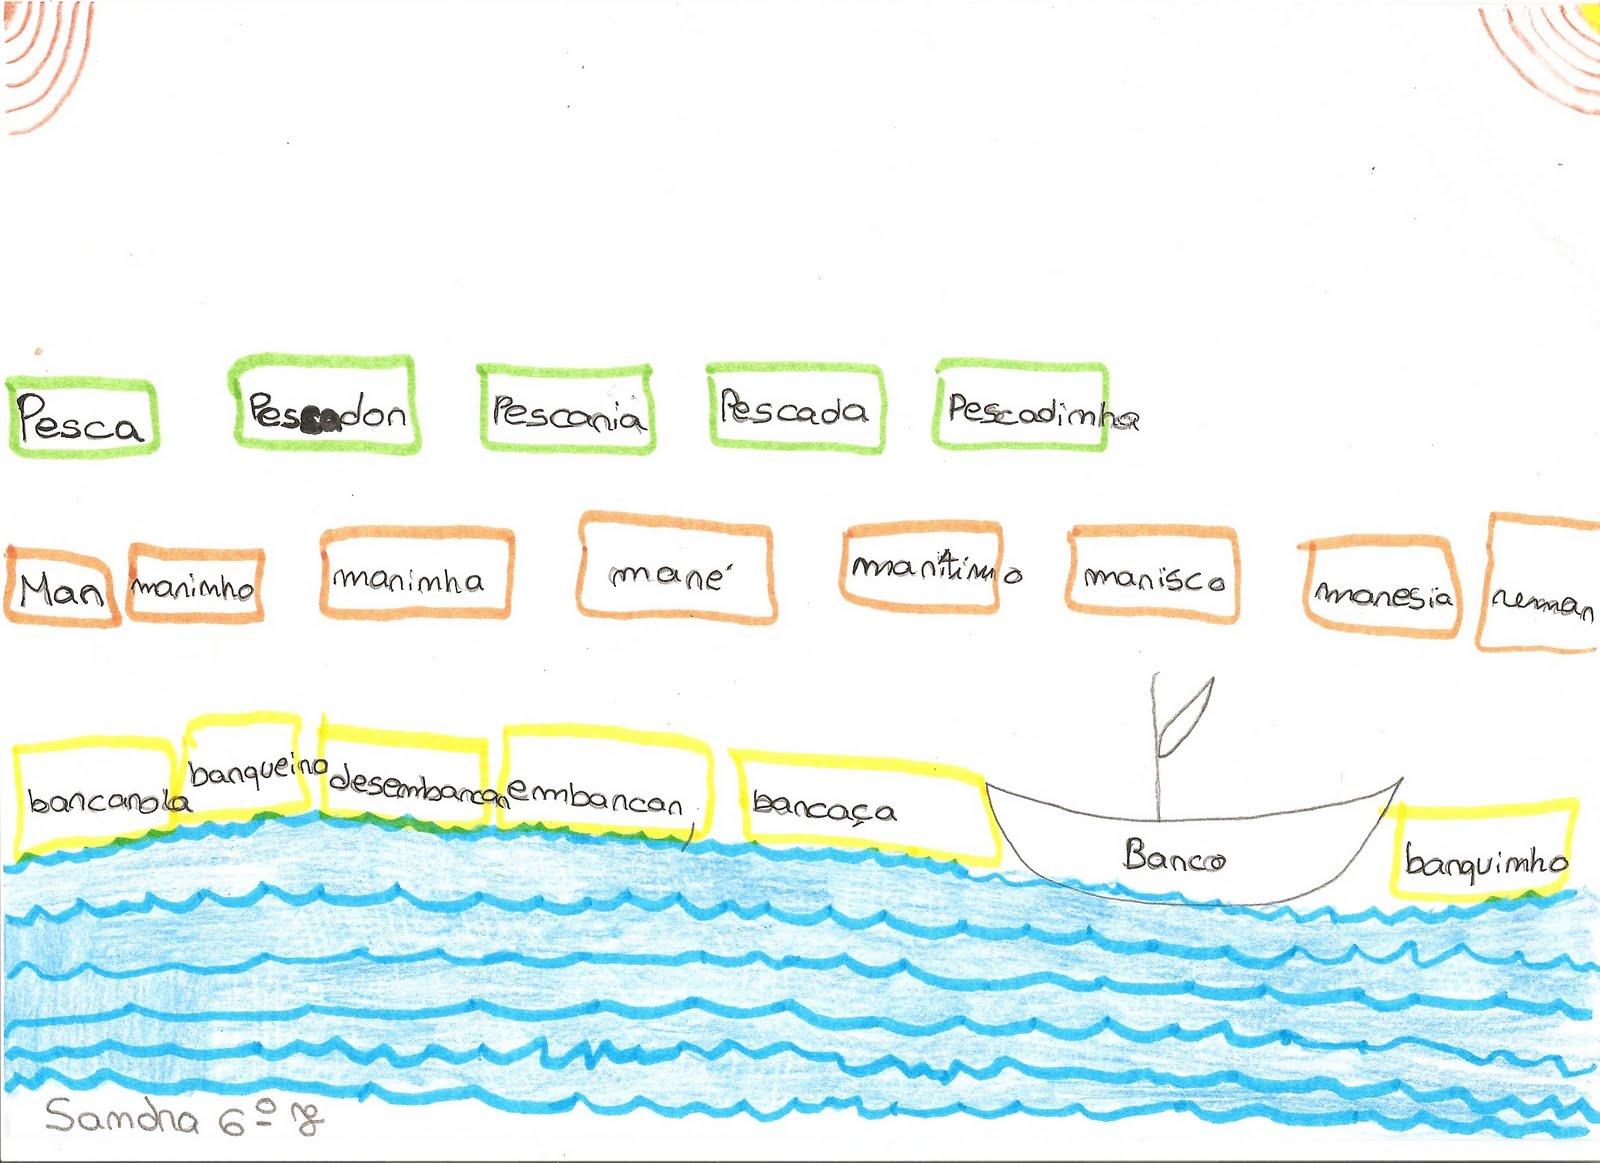 Pesca Pescador Pescaria Pescada Pescadinha
Mar marinho marinha maré marítimo marisco maresia remar
barcarola barqueiro desembarcar embarcar barcaça Barco barquinho
Sandra 6º